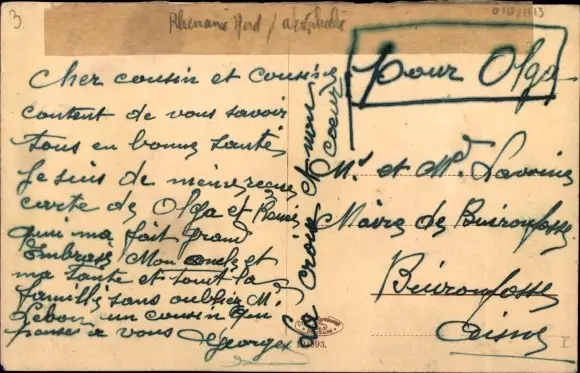 3.
Rhenanie Nord /
Cher cousin et Cousine
content de vous savoir
tous en bonne santé
Je suis de même reçue
carte de Olga et
qui ma fait grand
Embrasse Mon oncle et
ma tante et tout la
famille sans oublier Mr
Lebon un cousin qui
pense a vous
Georges
La croix et mon
coeur
pour Olga
Mr et Md Lavoine
Maire de Buironfosse
Buironfosse
Aisne
I